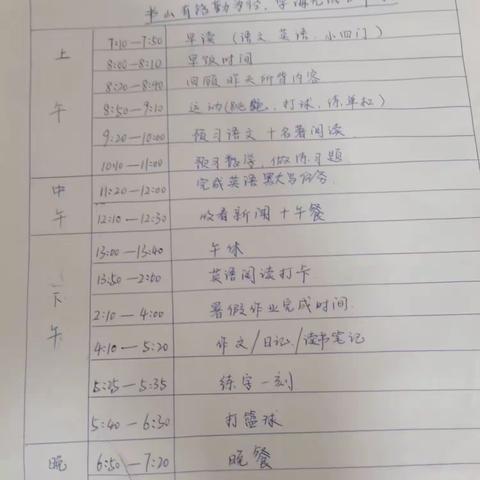 书山有路勤为径,学海无
上午
7:10—7:50 早读(语文 英语、小四门)
8:00—8:10 早饭时间
8:20—8:40 回顾昨天所背内容
8:50—9:10 运动(跳绳、打球、练单杠)
9:20—10:00 预习语文+名著阅读
10:10—11:00 预习数学、做练习题
中午
11:20—12:00 完成英语默写任务
12:10—12:30 收看新闻+午餐
下午
13:00—13:40 午休
13:50—2:00 英语阅读打卡
2:10—4:00 暑假作业完成时间
4:10—5:20 作文/日记/读书笔记
5:25—5:35 练字一刻
5:40—6:30 打篮球
晚
6:50—7:20 晚餐